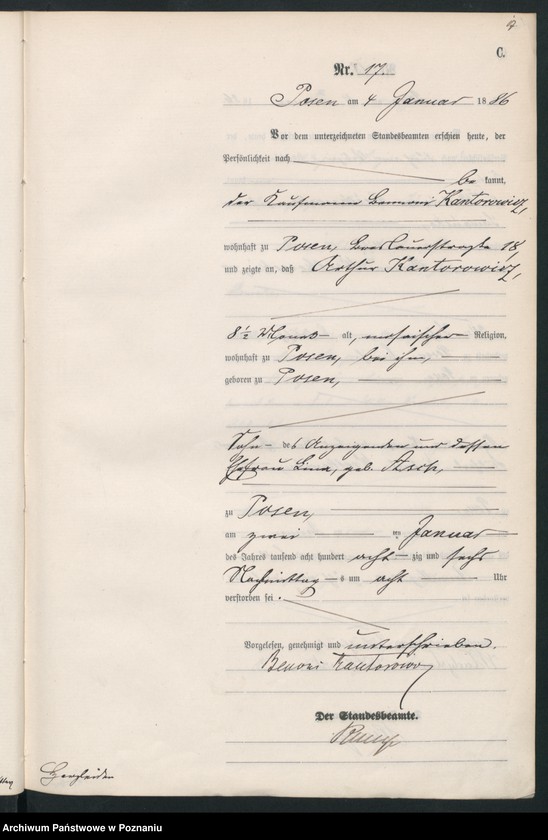 C.
Nr. 17.
Posen am 4 Januar 1886
Vor dem unterzeichneten Standesbeamten erschien heute, der
Persönlichkeit nach
be kannt,
der Kaufmann Benoni Kantorowicz,
wohnhaft zu Posen, Breslauerstraße 18,
und zeigte an, daß Arthur Kantorowicz,
8½ Monat alt, mosaischer Religion,
wohnhaft zu Posen, bei ihm,
geboren zu Posen,
Sohn des Anzeigenden und dessen
Ehefrau Lina, geb. Asch,
zu Posen,
am zwei ten Januar
des Jahres tausend acht hundert acht zig und sechs
Nachmittag s um acht Uhr
verstorben sei.
Vorgelesen, genehmigt und unterschrieben.
Benoni Kantorowicz
Der Standesbeamte.
Archiwum Państwowe w Poznaniu